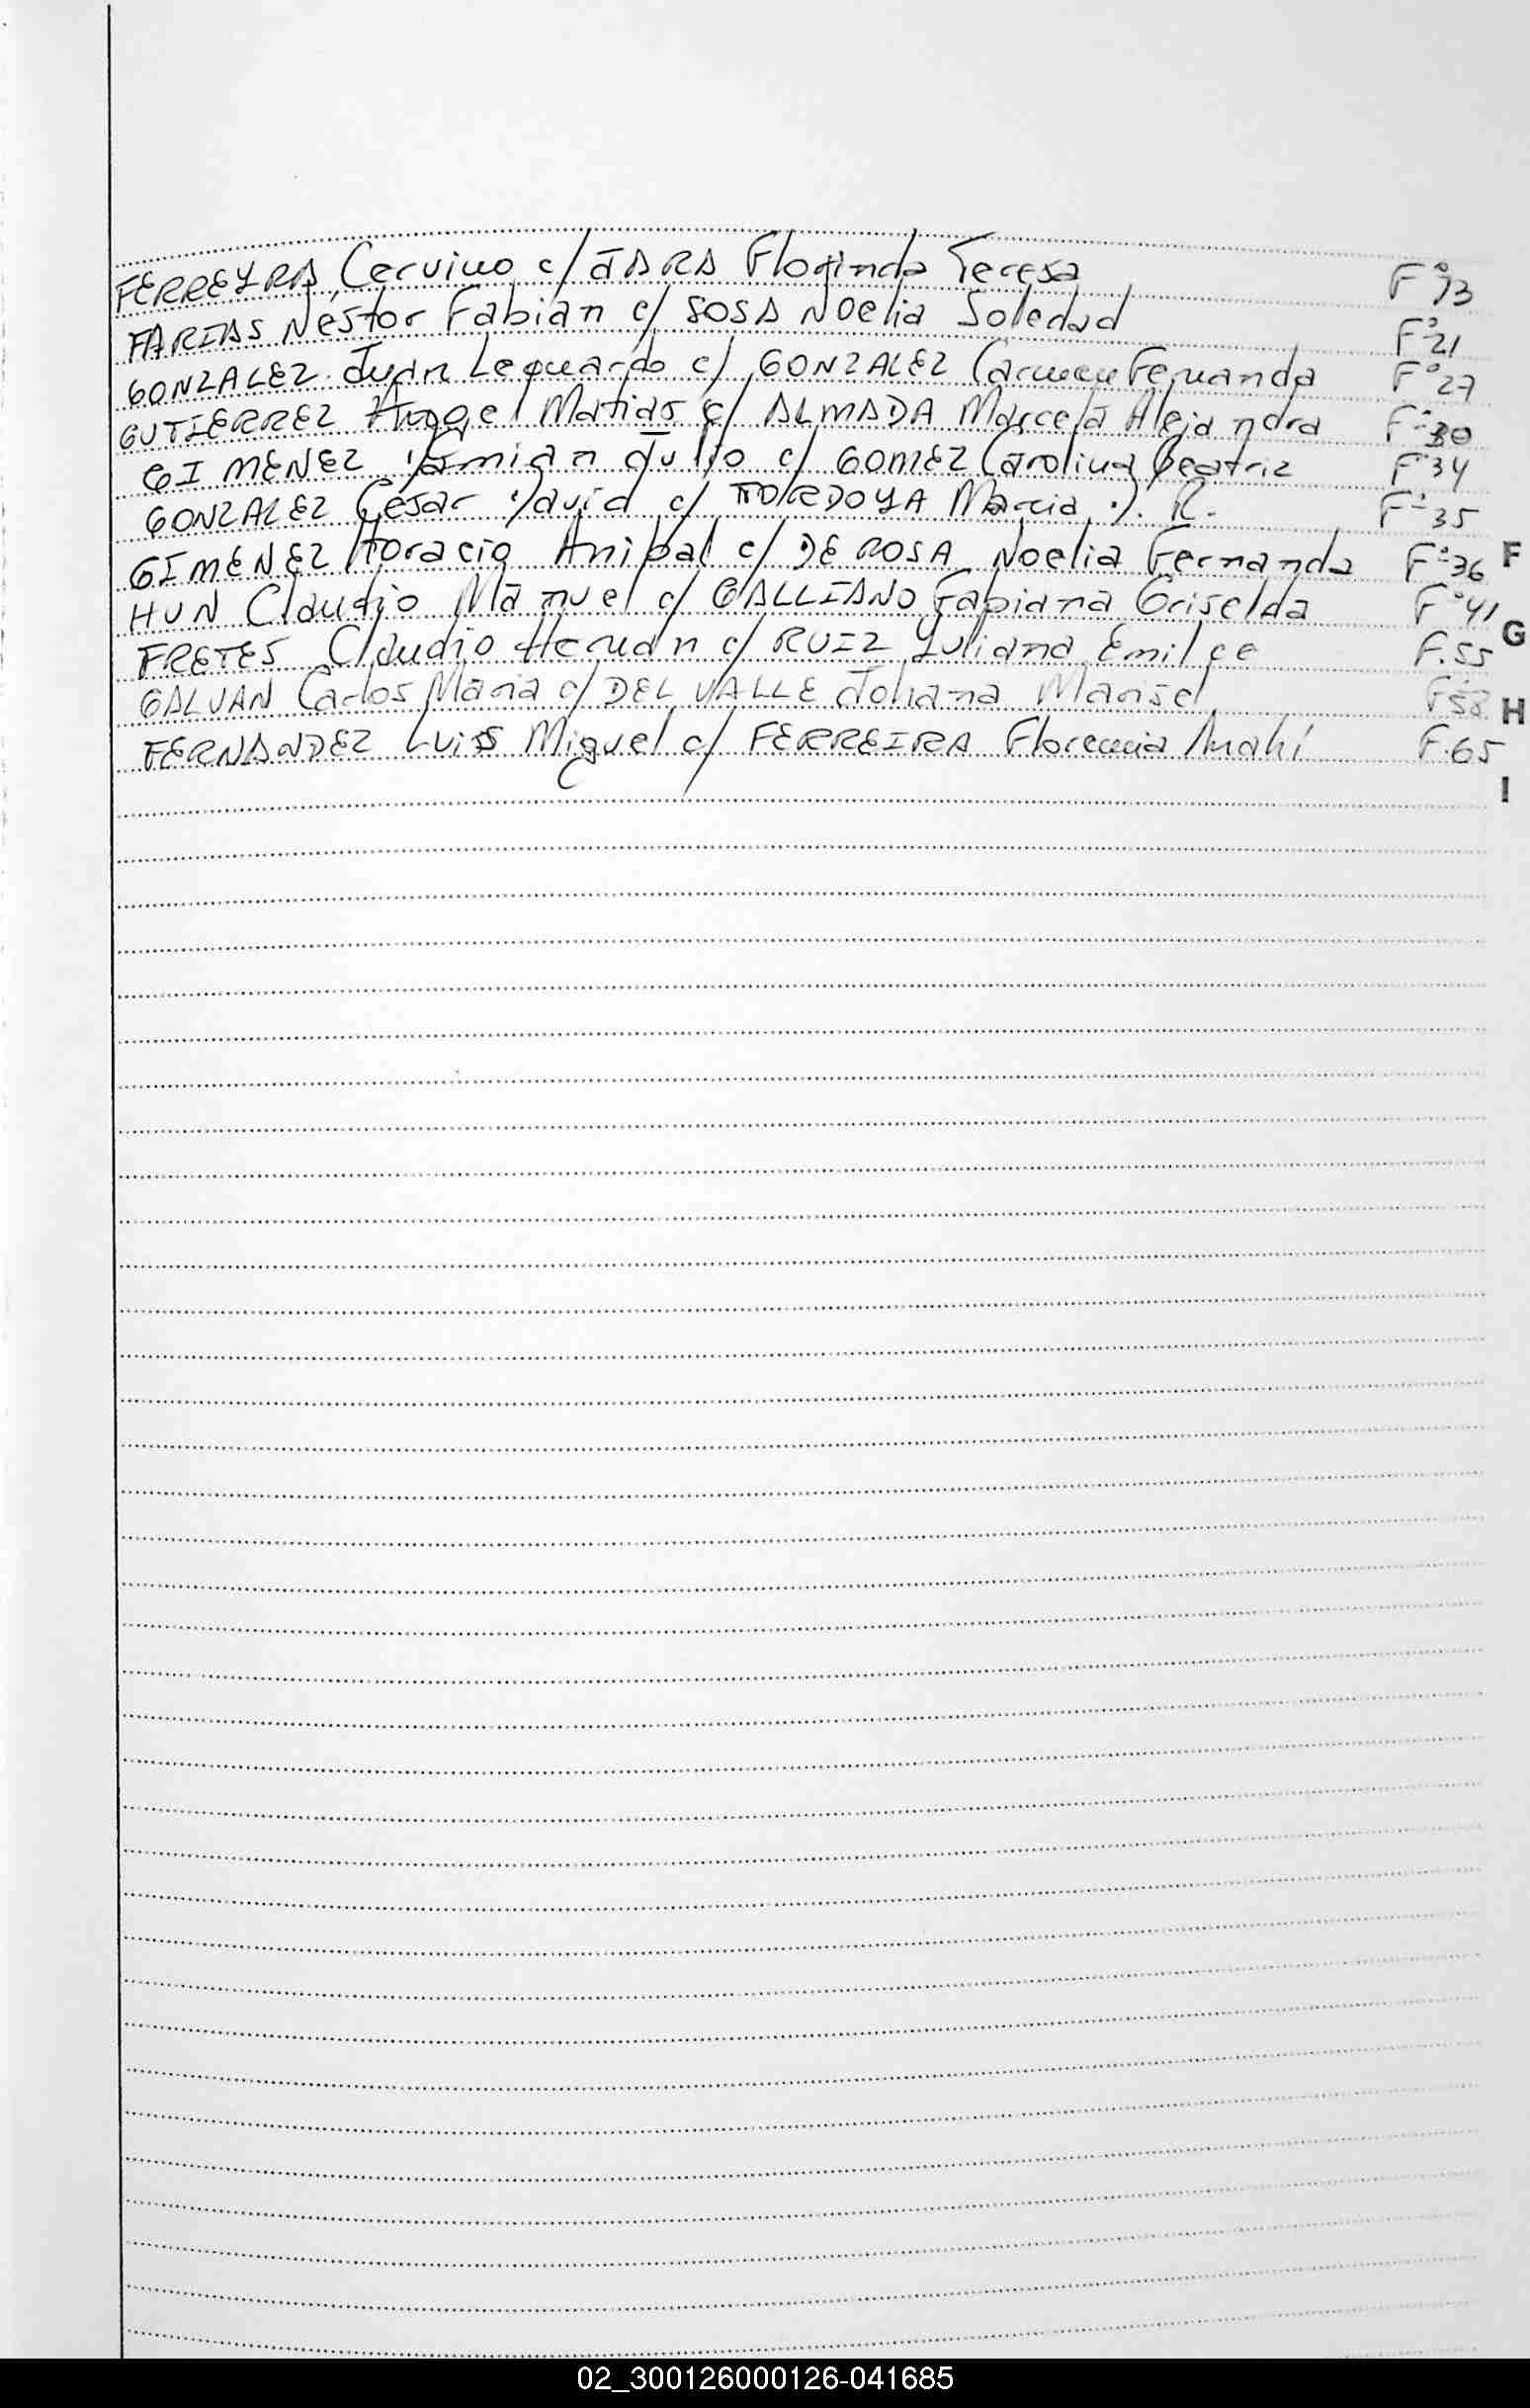 FERREYRA Cervino c/ JARA Florinda Teresa F°13
FARIAS Nestor Fabian c/ SOSA Noelia Soledad F°21
GONZALEZ Juan Leonardo c/ GONZALEZ Carmen Fernanda F°27
GUTIERREZ Angel Matias c/ ALMADA Marcela Alejandra F°30
GIMENEZ Damian Julio c/ GOMEZ Carolina Beatriz F°34
GONZALEZ Cesar David c/ TORDOYA Marcia D. R. F°35
GIMENEZ Horacio Anibal c/ DE ROSA Noelia Fernanda F°36
F
HUN Claudio Manuel c/ GALLIANO Fabiana Griselda F°41
G
FRETES Claudio Hernan c/ RUIZ Yuliana Emilce F.55
GALVAN Carlos Maria c/ DEL VALLE Johana Marisel F°58
H
FERNANDEZ Luis Miguel c/ FERREIRA Florencia Anahí F.65
I
02_300126000126-041685